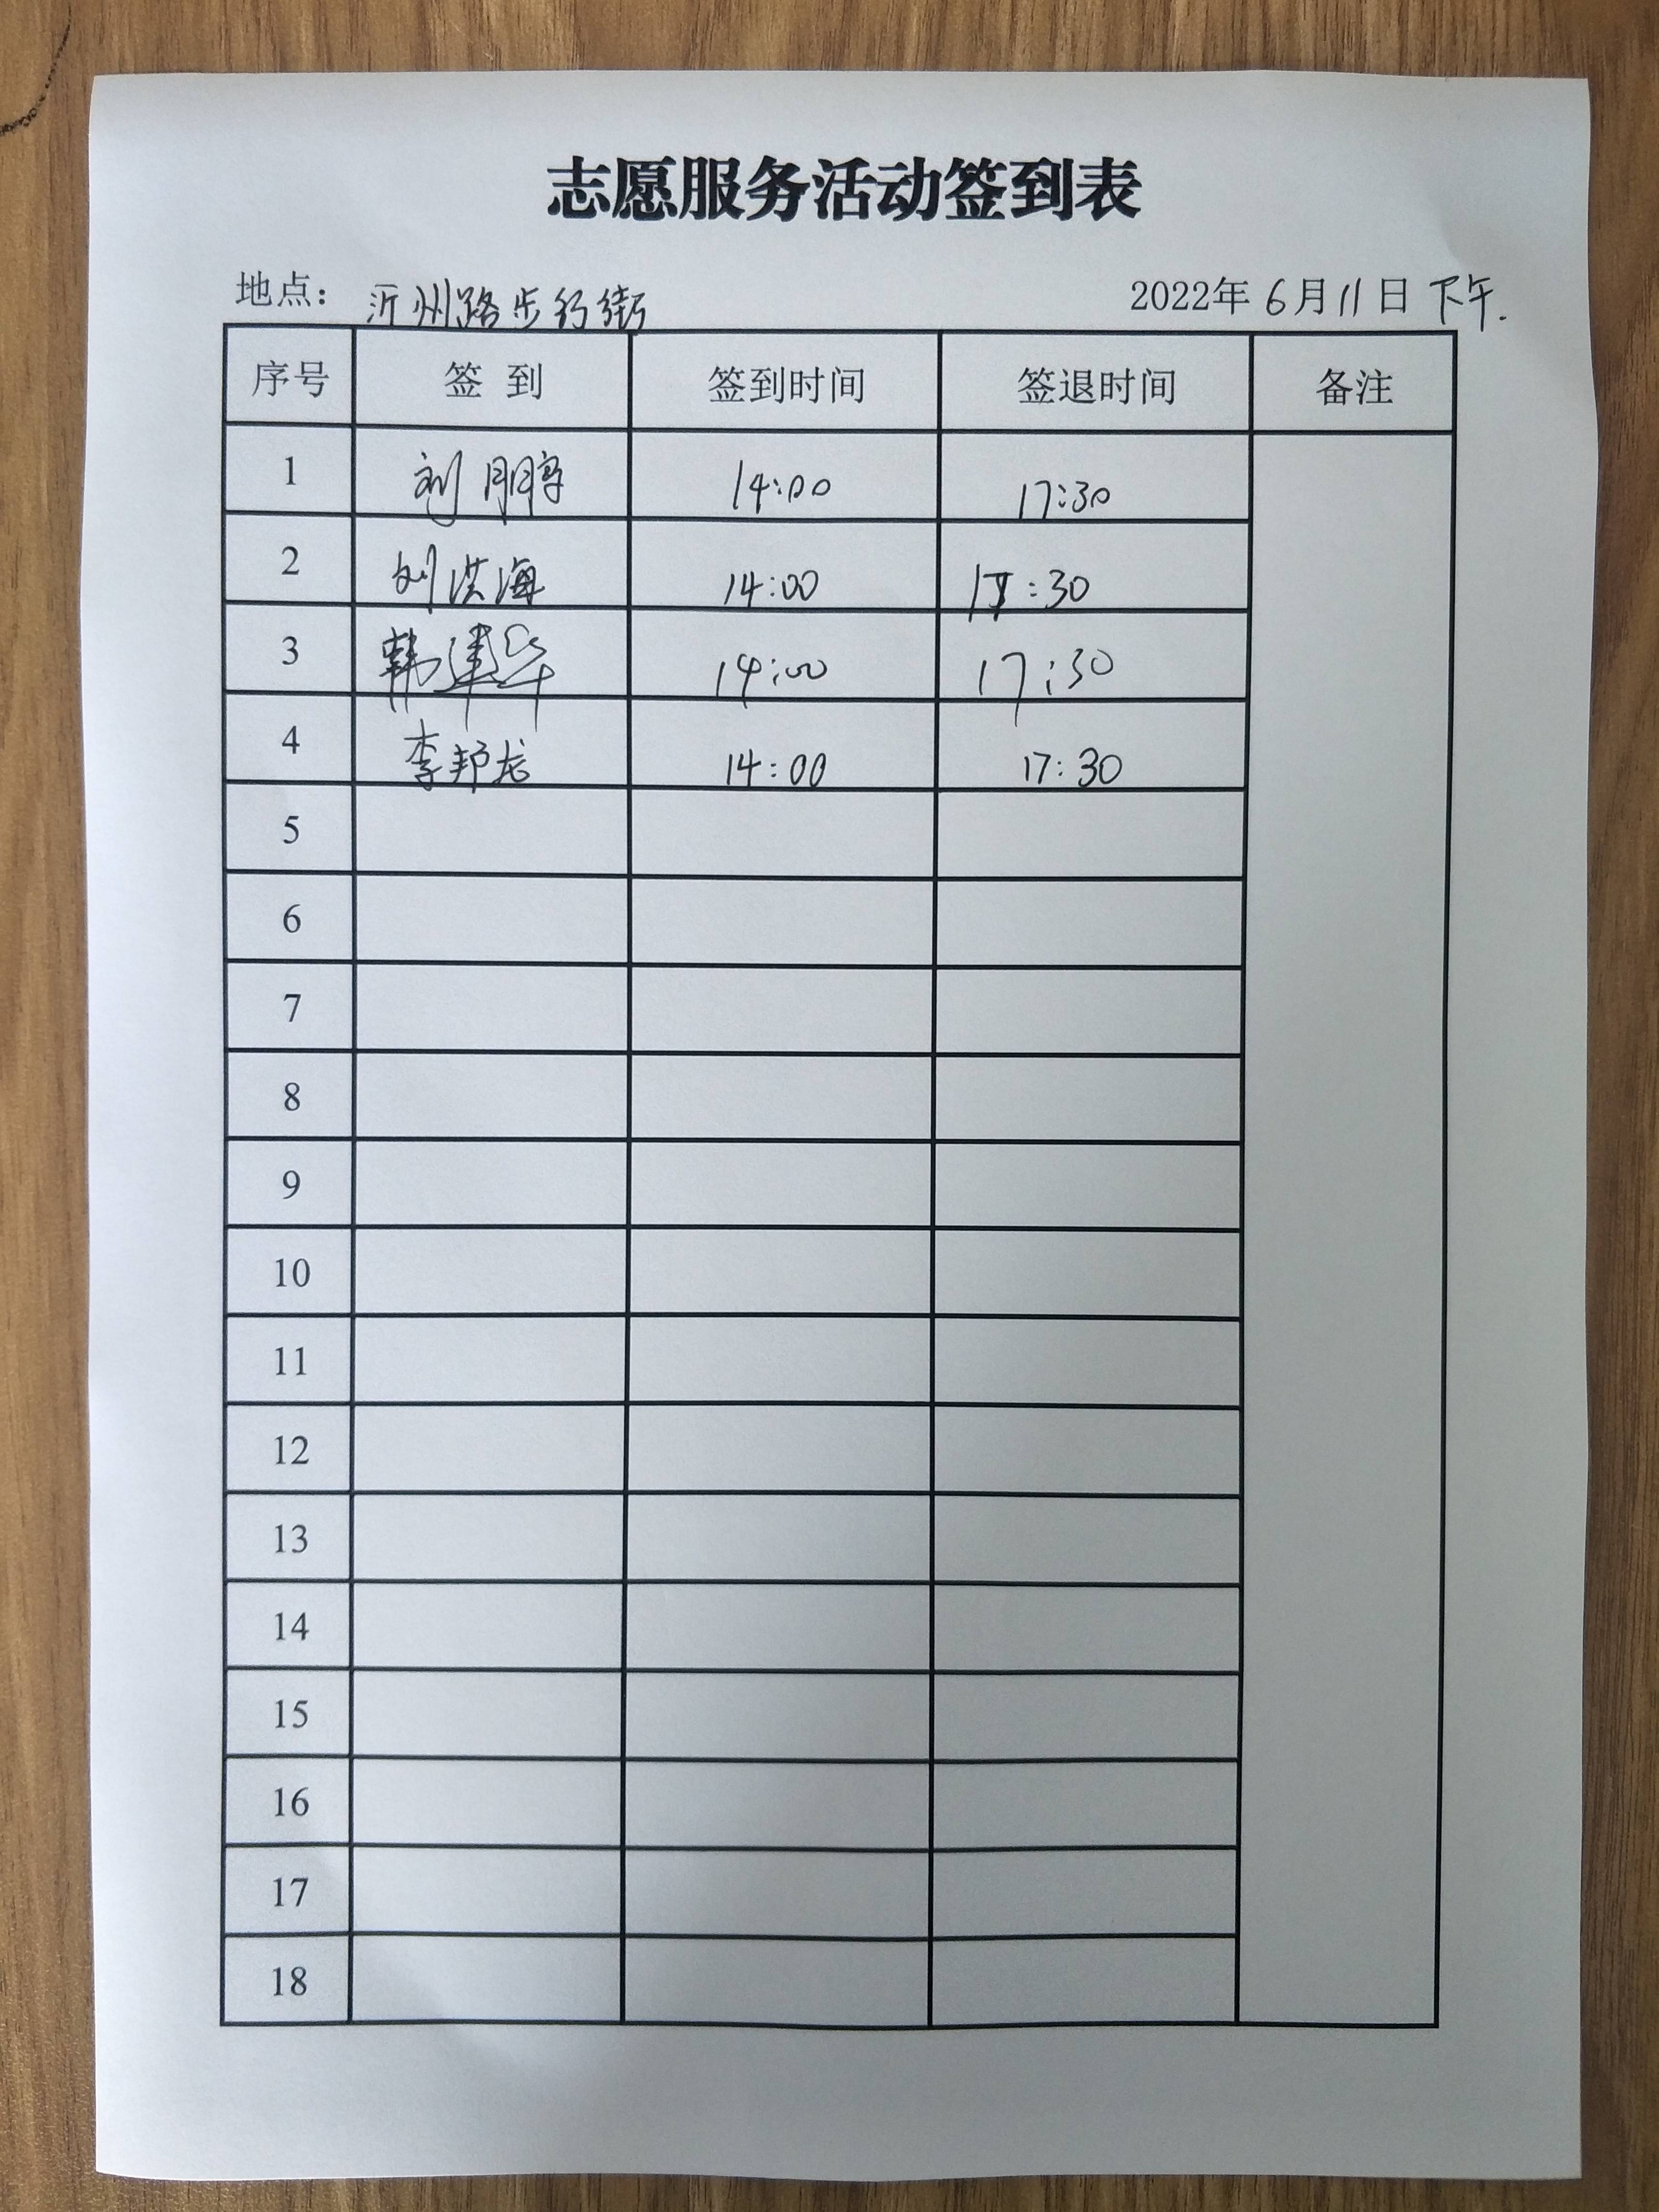 志愿服务活动签到表
地点： 沂州路步行街 2022年 6月 11日 下午.
序号 签 到 签到时间 签退时间 备注
1 刘鹏 14:00 17:30
2 刘洪海 14:00 17:30
3 韩建华 14:00 17:30
4 李邦龙 14:00 17:30
5
6
7
8
9
10
11
12
13
14
15
16
17
18